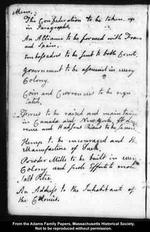 Mem.
The Confederation to be taken up
in Paragraphs.
An Alliance to be formed with France
and Spain.
Embassadors to be sent to both Courts.
Government to be assumed in every
Colony.
Coin and Currencies to be regu
lated.
Forces to be raised and maintain
in Canada and New York. St. Law
rence and Hudsons River to be
Hemp to be encouraged and the
Manufacture of Duck.
Powder Mills to be built in every
Colony and fresh Efforts to make
Salt Petre.
An Address to the Inhabitants of
the Colonies.
From the Adams Family Papers, Massachusetts Historical Society.
Not to be reproduced without permission.